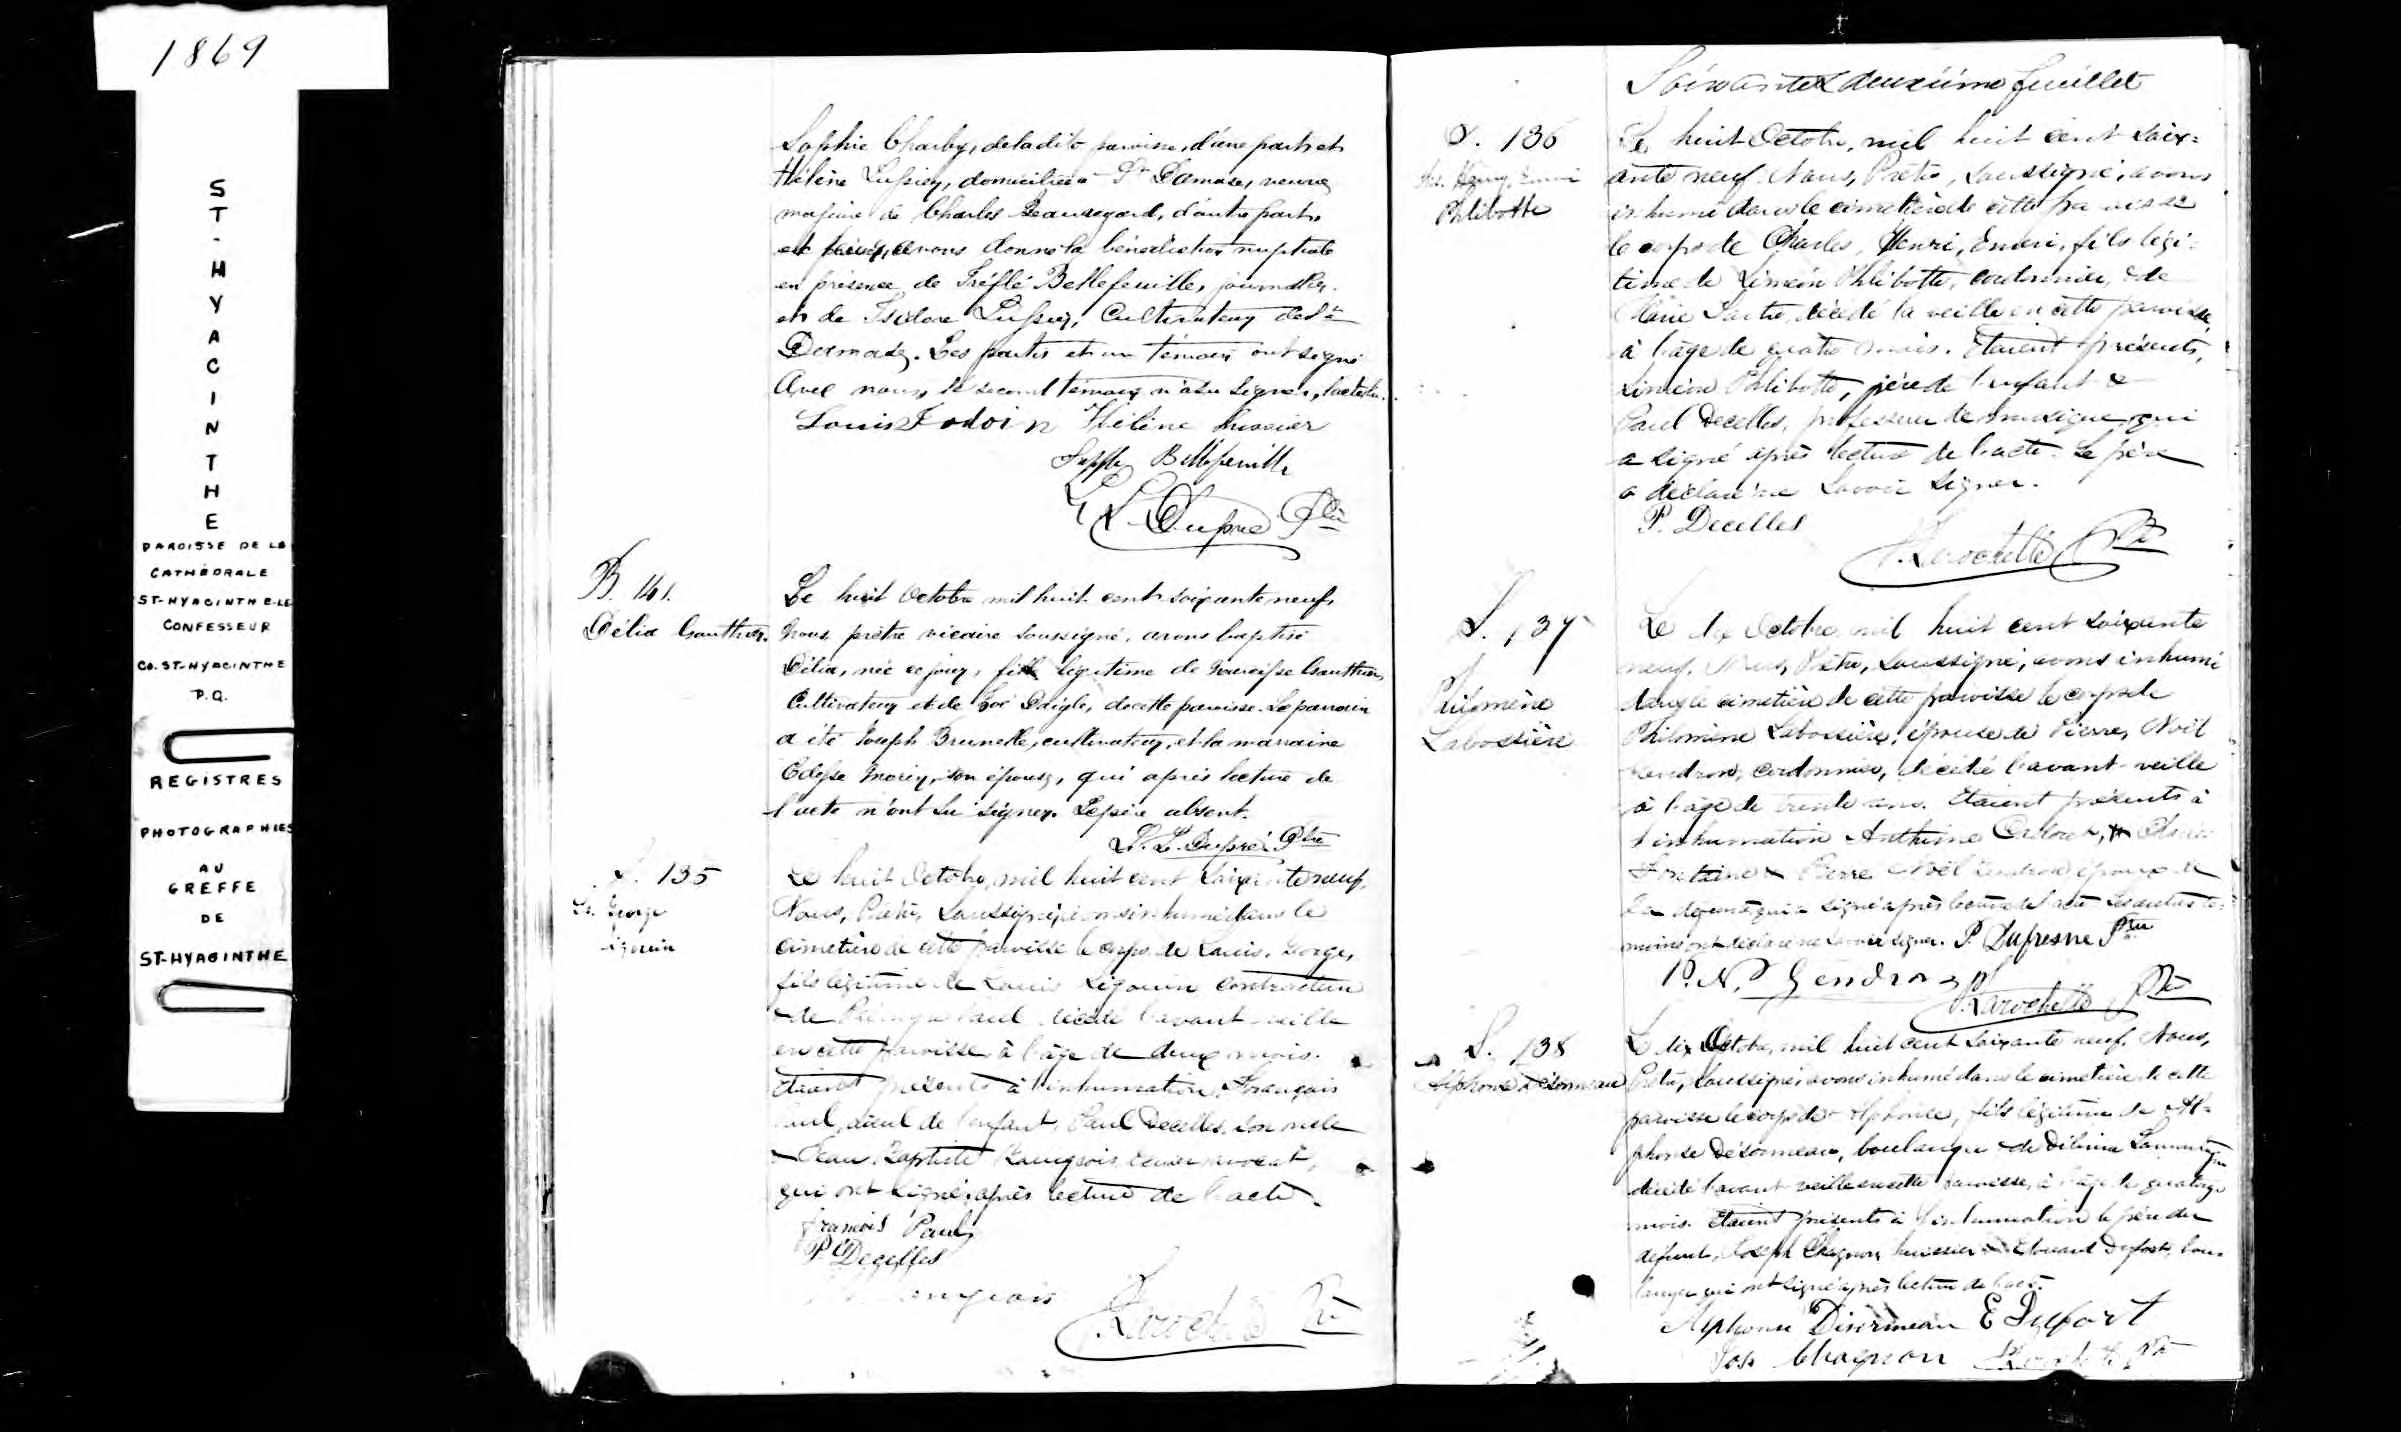 1869
ST-HYACINTHE
PAROISSE DE LA
CATHÉDRALE
ST-HYACINTHE-LE
CONFESSEUR
CO. ST-HYACINTHE
P.Q.
REGISTRES
PHOTOGRAPHIES
AU
GREFFE
DE
ST-HYACINTHE
Sophie Charby, de la dite paroisse, d'une part et
Hélène Lussier, domiciliée à St Damase, veuve
majeure de Charles Beauregard, d'autre part,
et avons donné la bénédiction nuptiale
en présence de Trefflé Bellefeuille, journalier
et de Isidore Lussier, Cultivateur de St
Damase. Les parties et un témoin ont signé
avec nous, le second témoin n'a su signer, lecture
Louis Jodoin Hélène Lussier
Bellefeuille
L. L. Dupré Ptre
B. 141.
Délia Gauthier.
Le huit Octobre mil huit cent soixante neuf,
Nous prêtre vicaire soussigné, avons baptisé
Délia, née ce jour, fille légitime de Narcisse Gauthier,
Cultivateur et de Zoé Daigle, de cette paroisse. Le parrain
a été Joseph Brunelle, cultivateur, et la marraine
Edesse Morin, son épouse, qui après lecture de
l'acte n'ont su signer. Le père absent.
L. L. Dupré Ptre
S. 135
Ls. George
Ligouin
Le huit Octobre, mil huit cent soixante neuf,
Nous, Prêtre, soussigné, avons inhumé dans le
cimetière de cette paroisse le corps de Louis, George,
fils légitime de Louis Ligouin contracteur
& de Paul décédé l'avant-veille
en cette paroisse, à l'âge de deux mois.
Etaient présents à l'inhumation, François
Paul, aïeul de l'enfant, Paul Decelles, son oncle
& Jean Baptiste Bourgeois, avocat,
qui ont signé, après lecture de l'acte.
François Paul
P. Decelles
Bourgeois
P. Larochelle Ptre
Soixante & deuxième feuillet
S. 136
Chs. Henry, Emeri
Phlibotte
Le huit Octobre, mil huit cent soix=
ante neuf. Nous, Prêtre, soussigné, avons
inhumé dans le cimetière de cette paroisse
le corps de Charles, Henri, Emeri, fils légi=
time de Siméon Phlibotte, cordonnier, & de
Marie décédé la veille en cette paroisse,
à l'âge de quatre mois. Etaient présents,
Siméon Phlibotte, père de l'enfant &
Paul Decelles, professeur de musique, qui
a signé après lecture de l'acte. Le père
a déclaré ne savoir signer.
P. Decelles
P. Larochelle Ptre
S. 137
Philomène
Labossière
Le dix Octobre, mil huit cent soixante
neuf. Nous, Prêtre, soussigné, avons inhumé
dans le cimetière de cette paroisse le corps de
Philomène Labossière, épouse de Pierre, Noël
Gendron, cordonnier, décédée l'avant-veille
à l'âge de trente ans. Etaient présents à
l'inhumation Anthime
Fontaine & Pierre Noël Gendron époux de
la défunte, qui a signé après lecture de l'acte. Les autres té=
moins ont déclaré ne savoir signer. P. Dufresne Ptre
P. N. Gendron
P. Larochelle Ptre
S. 138
Alphonse Désormeau
Le dix Octobre, mil huit cent soixante neuf. Nous,
Prêtre, soussigné, avons inhumé dans le cimetière de cette
paroisse le corps de Alphonse, fils légitime de Al=
phonse Désormeau, boulanger & de Délima Lamontagne
décédé l'avant veille en cette paroisse, à l'âge de quatorze
mois. Etaient présents à l'inhumation le père du
défunt, Joseph Chagnon, huissier & Edouard Dufort, bou=
langer qui ont signé après lecture de l'acte.
Alphonse Désormeau E Dufort
Jos Chagnon P. Larochelle Ptre